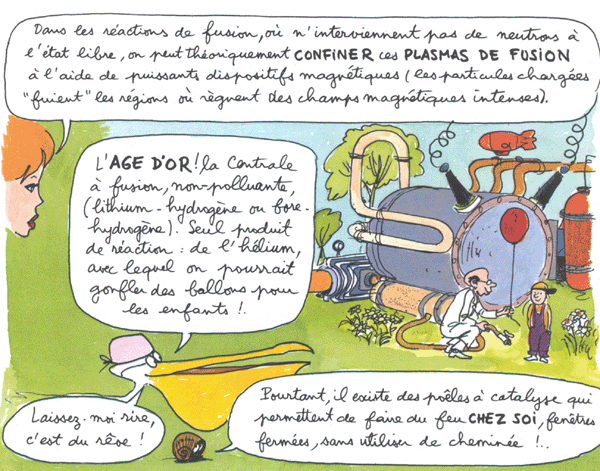 Dans les réactions de fusion, où n'interviennent pas de neutrons à
l'état libre, on peut théoriquement CONFINER ces PLASMAS DE FUSION
à l'aide de puissants dispositifs magnétiques (les particules chargées
"fuient" les régions où règnent des champs magnétiques intenses).
L'AGE D'OR! la Centrale
à fusion, non-polluante,
(lithium-hydrogène ou bore-
hydrogène). Seul produit
de réaction : de l'hélium,
avec lequel on pourrait
gonfler des ballons pour
les enfants !.
Laissez-moi rire,
c'est du rêve !
Pourtant, il existe des poêles à catalyse qui
permettent de faire du feu CHEZ SOI, fenêtres
fermées, sans utiliser de cheminée !..